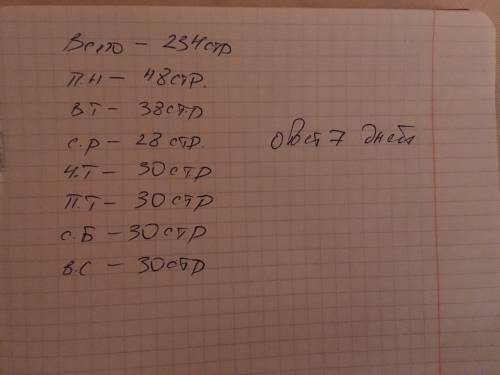 Всего – 234стр
П.Н – 48стр.
ВТ – 38стр
с.р – 28стр.
Ч.Т – 30стр
П.Т – 30стр
с.Б – 30стр
в.с – 30стр
ответ 7 дней